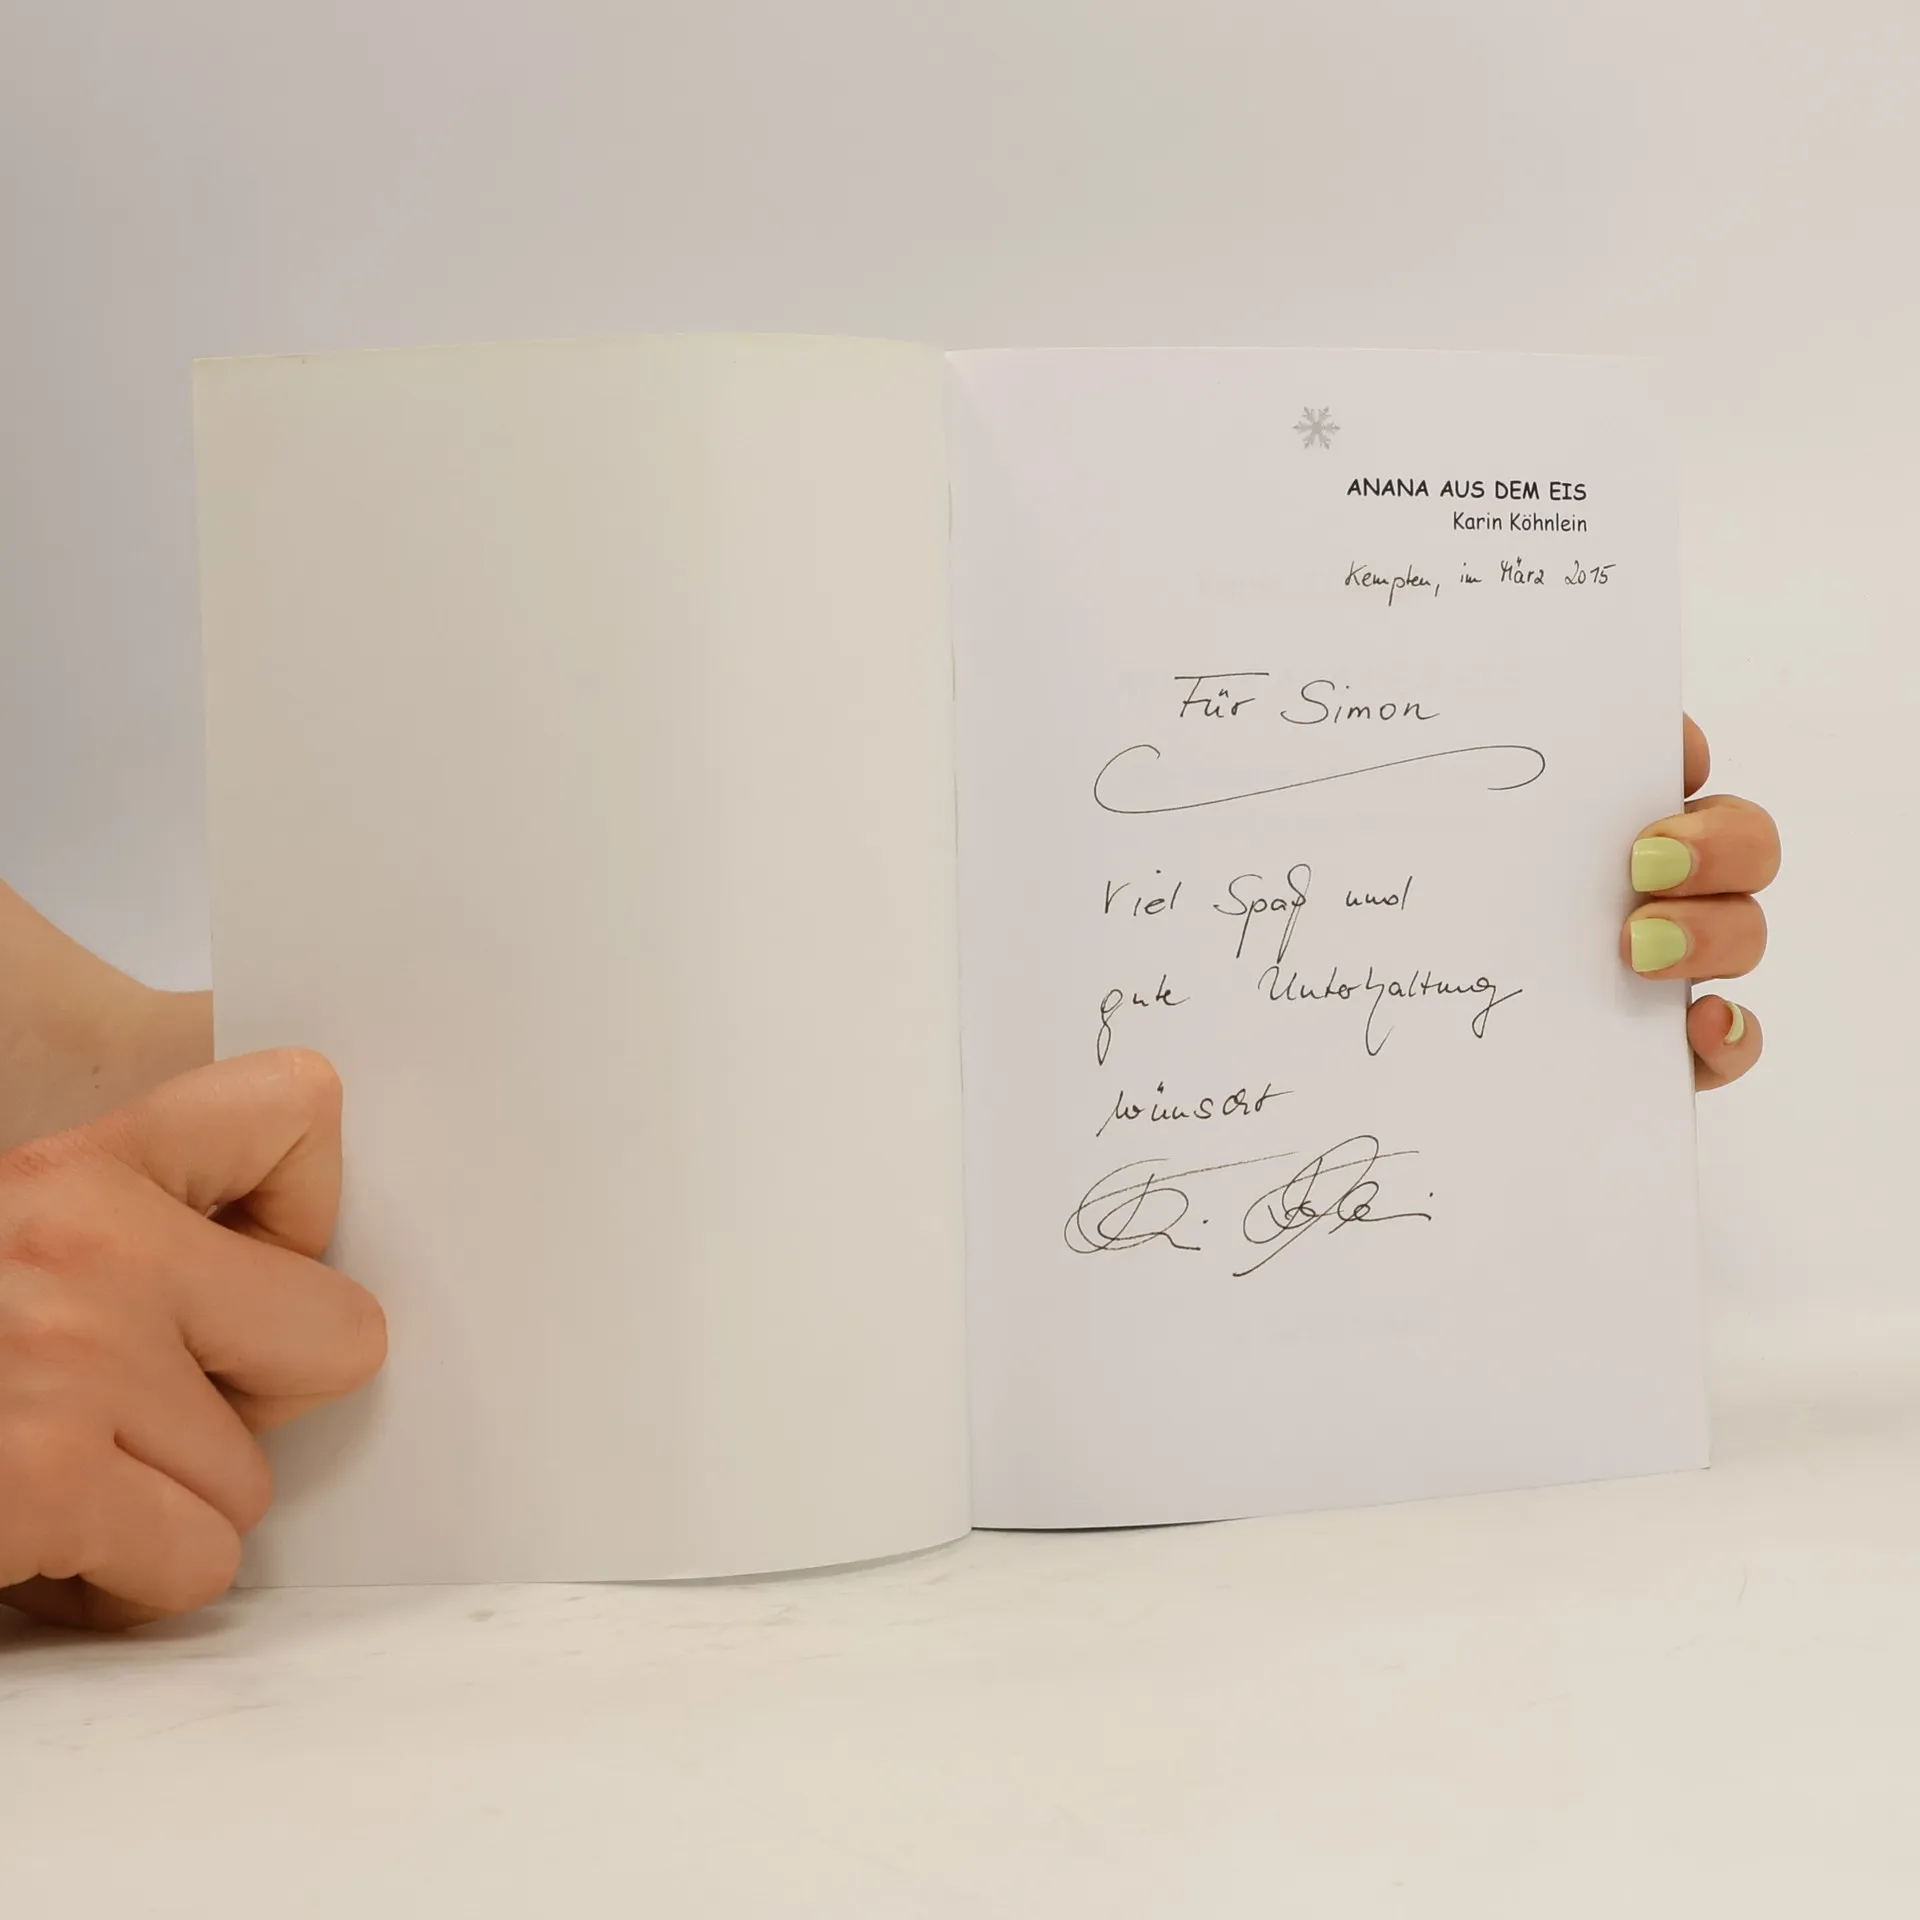 ANANA AUS DEM EIS
Karin Köhnlein
Kempten, im März 2015
Für Simon
Viel Spaß und
gute Unterhaltung
wünscht